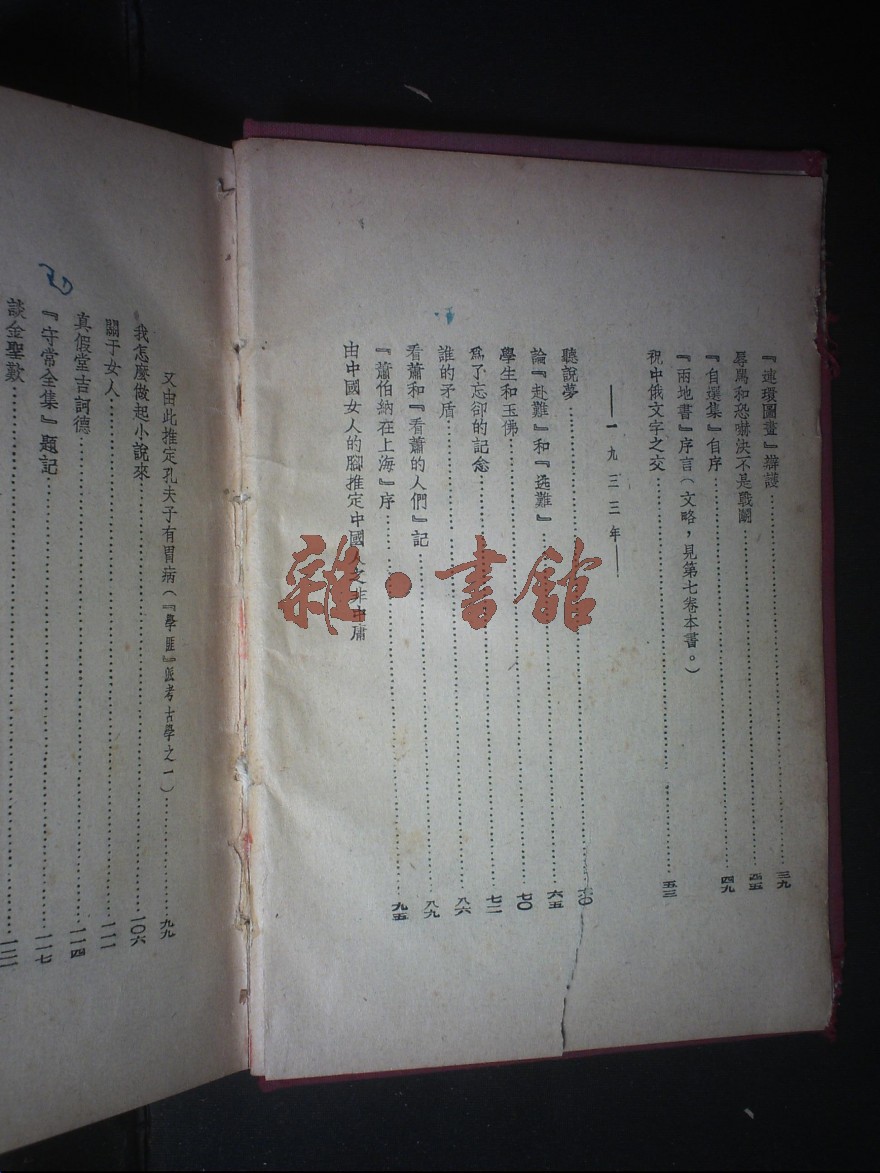 『連環圖畫』辯護……三九
辱罵和恐嚇決不是戰鬬……四五
『自選集』自序……四九
『兩地書』序言(文略，見第七卷本書。)
祝中俄文字之交……五三
——一九三三年——
聽說夢……六〇
論『赴難』和『逃難』……六五
學生和玉佛……七〇
爲了忘卻的記念……七二
誰的矛盾……八六
看蕭和『看蕭的人們』記……八九
『蕭伯納在上海』序……九五
由中國女人的腳推定中國人之非中庸
又由此推定孔夫子有胃病(『學匪』派考古學之一)……九九
我怎麼做起小說來……一〇六
關于女人……一一一
真假堂吉訶德……一一四
『守常全集』題記……一一七
談金聖歎……一二一
雜·書館